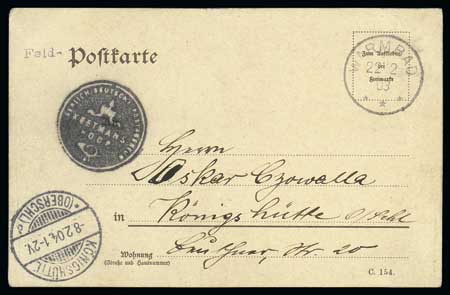 Feld-
Postkarte
Zum Aufkleben
der
Freimarke
WARMBAD
22 2
03
KEETMANSHOOP
Herrn
Oskar Czowalla
in Königshütte
Wohnung
(Straße und Hausnummer)
Str. 20
KÖNIGSHÜTTE
-8.2.04.1-2V.
* (OBERSCHL.)
C. 154.